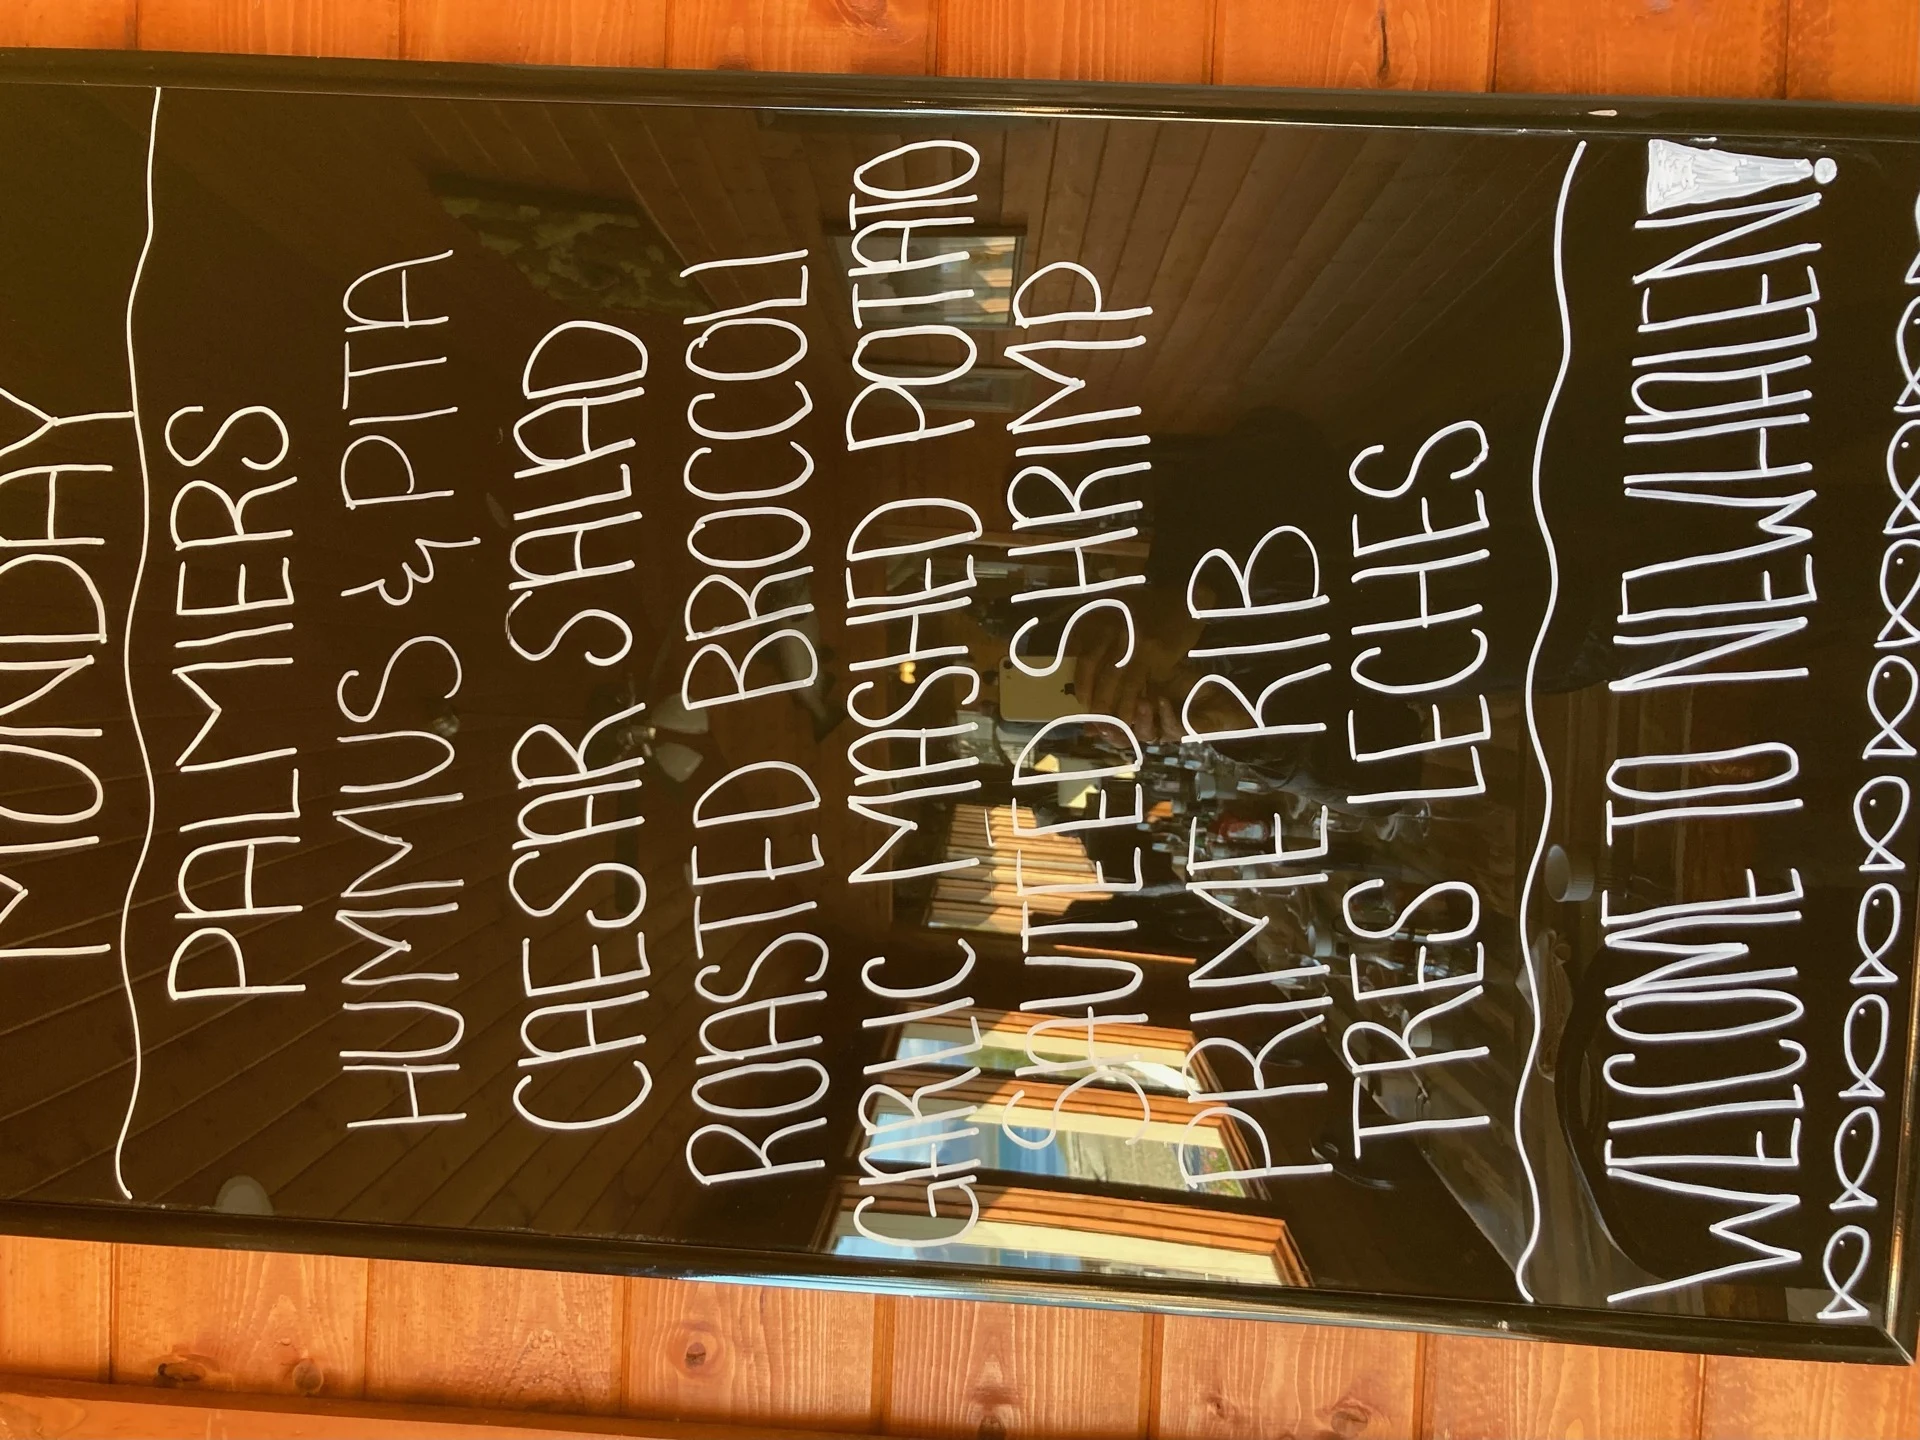 MONDAY
PALMIERS
HUMMUS & PITA
CAESAR SALAD
ROASTED BROCCOLI
GARLIC MASHED POTATO
SAUTEED SHRIMP
PRIME RIB
TRES LECHES
WELCOME TO NEWHALEN!